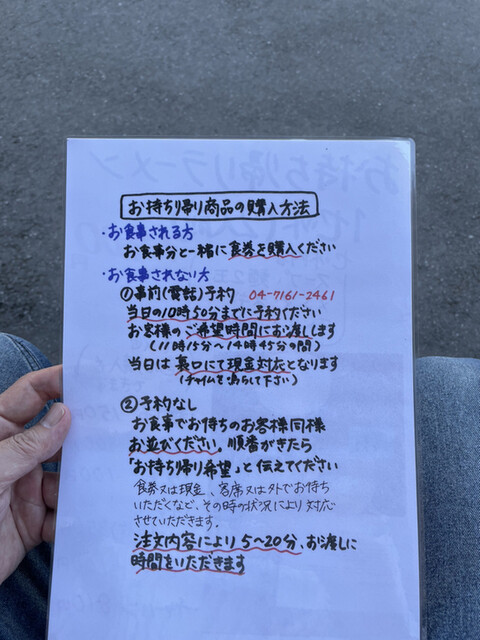 お持ち帰り商品の購入方法
・お食事される方
お食事分と一緒に食券を購入ください
・お食事されない方
①事前(電話)予約 04-7161-2461
当日の10時50分までに予約ください
お客様のご希望時間にお渡しします
(11時15分〜14時45分の間)
当日は裏口にて現金対応となります
(チャイムを鳴らして下さい)
②予約なし
お食事でお待ちのお客様同様
お並びください。順番がきたら
「お持ち帰り希望」と伝えてください
食券又は現金、客席又は外でお待ち
いただくなど、その時の状況により対応
させていただきます。
注文内容により5〜20分、お渡しに
時間をいただきます